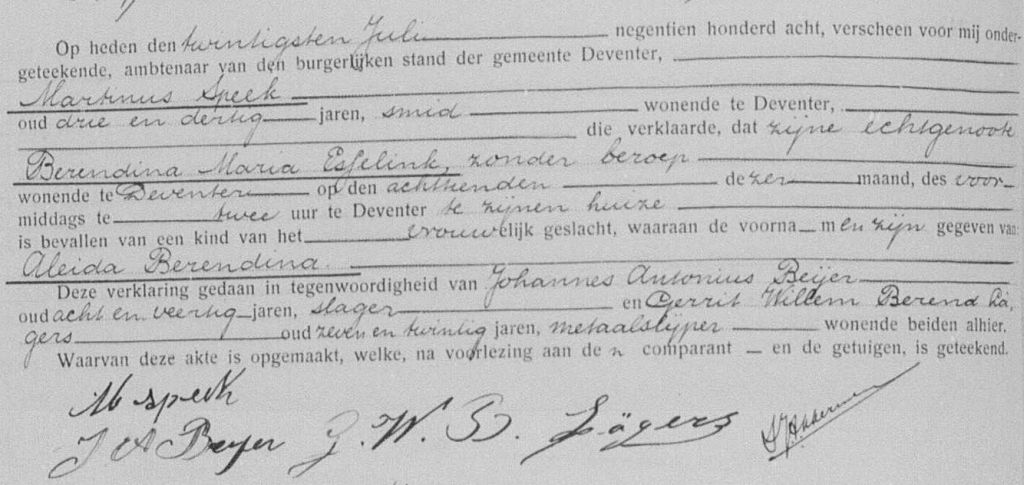 Op heden den twintigsten Juli negentien honderd acht, verscheen voor mij onder-
geteekende, ambtenaar van den burgerlijken stand der gemeente Deventer,
Martinus Speek
oud drie en dertig jaren, smid wonende te Deventer,
die verklaarde, dat zijne echtgenoote
Berendina Maria Esselink, zonder beroep
wonende te Deventer op den achttienden dezer maand, des voor-
middags te twee uur te Deventer te zijnen huize
is bevallen van een kind van het vrouwelijk geslacht, waaraan de voorna men zijn gegeven van:
Aleida Berendina.
Deze verklaring gedaan in tegenwoordigheid van Johannes Antonius Beijer
oud acht en veertig jaren, slager en Gerrit Willem Berend Lä,
gers oud zeven en twintig jaren, metaalslijper wonende beiden alhier.
Waarvan deze akte is opgemaakt, welke, na voorlezing aan de n comparant — en de getuigen, is geteekend.
M speek
J A Beyer G. W. B. Lägers